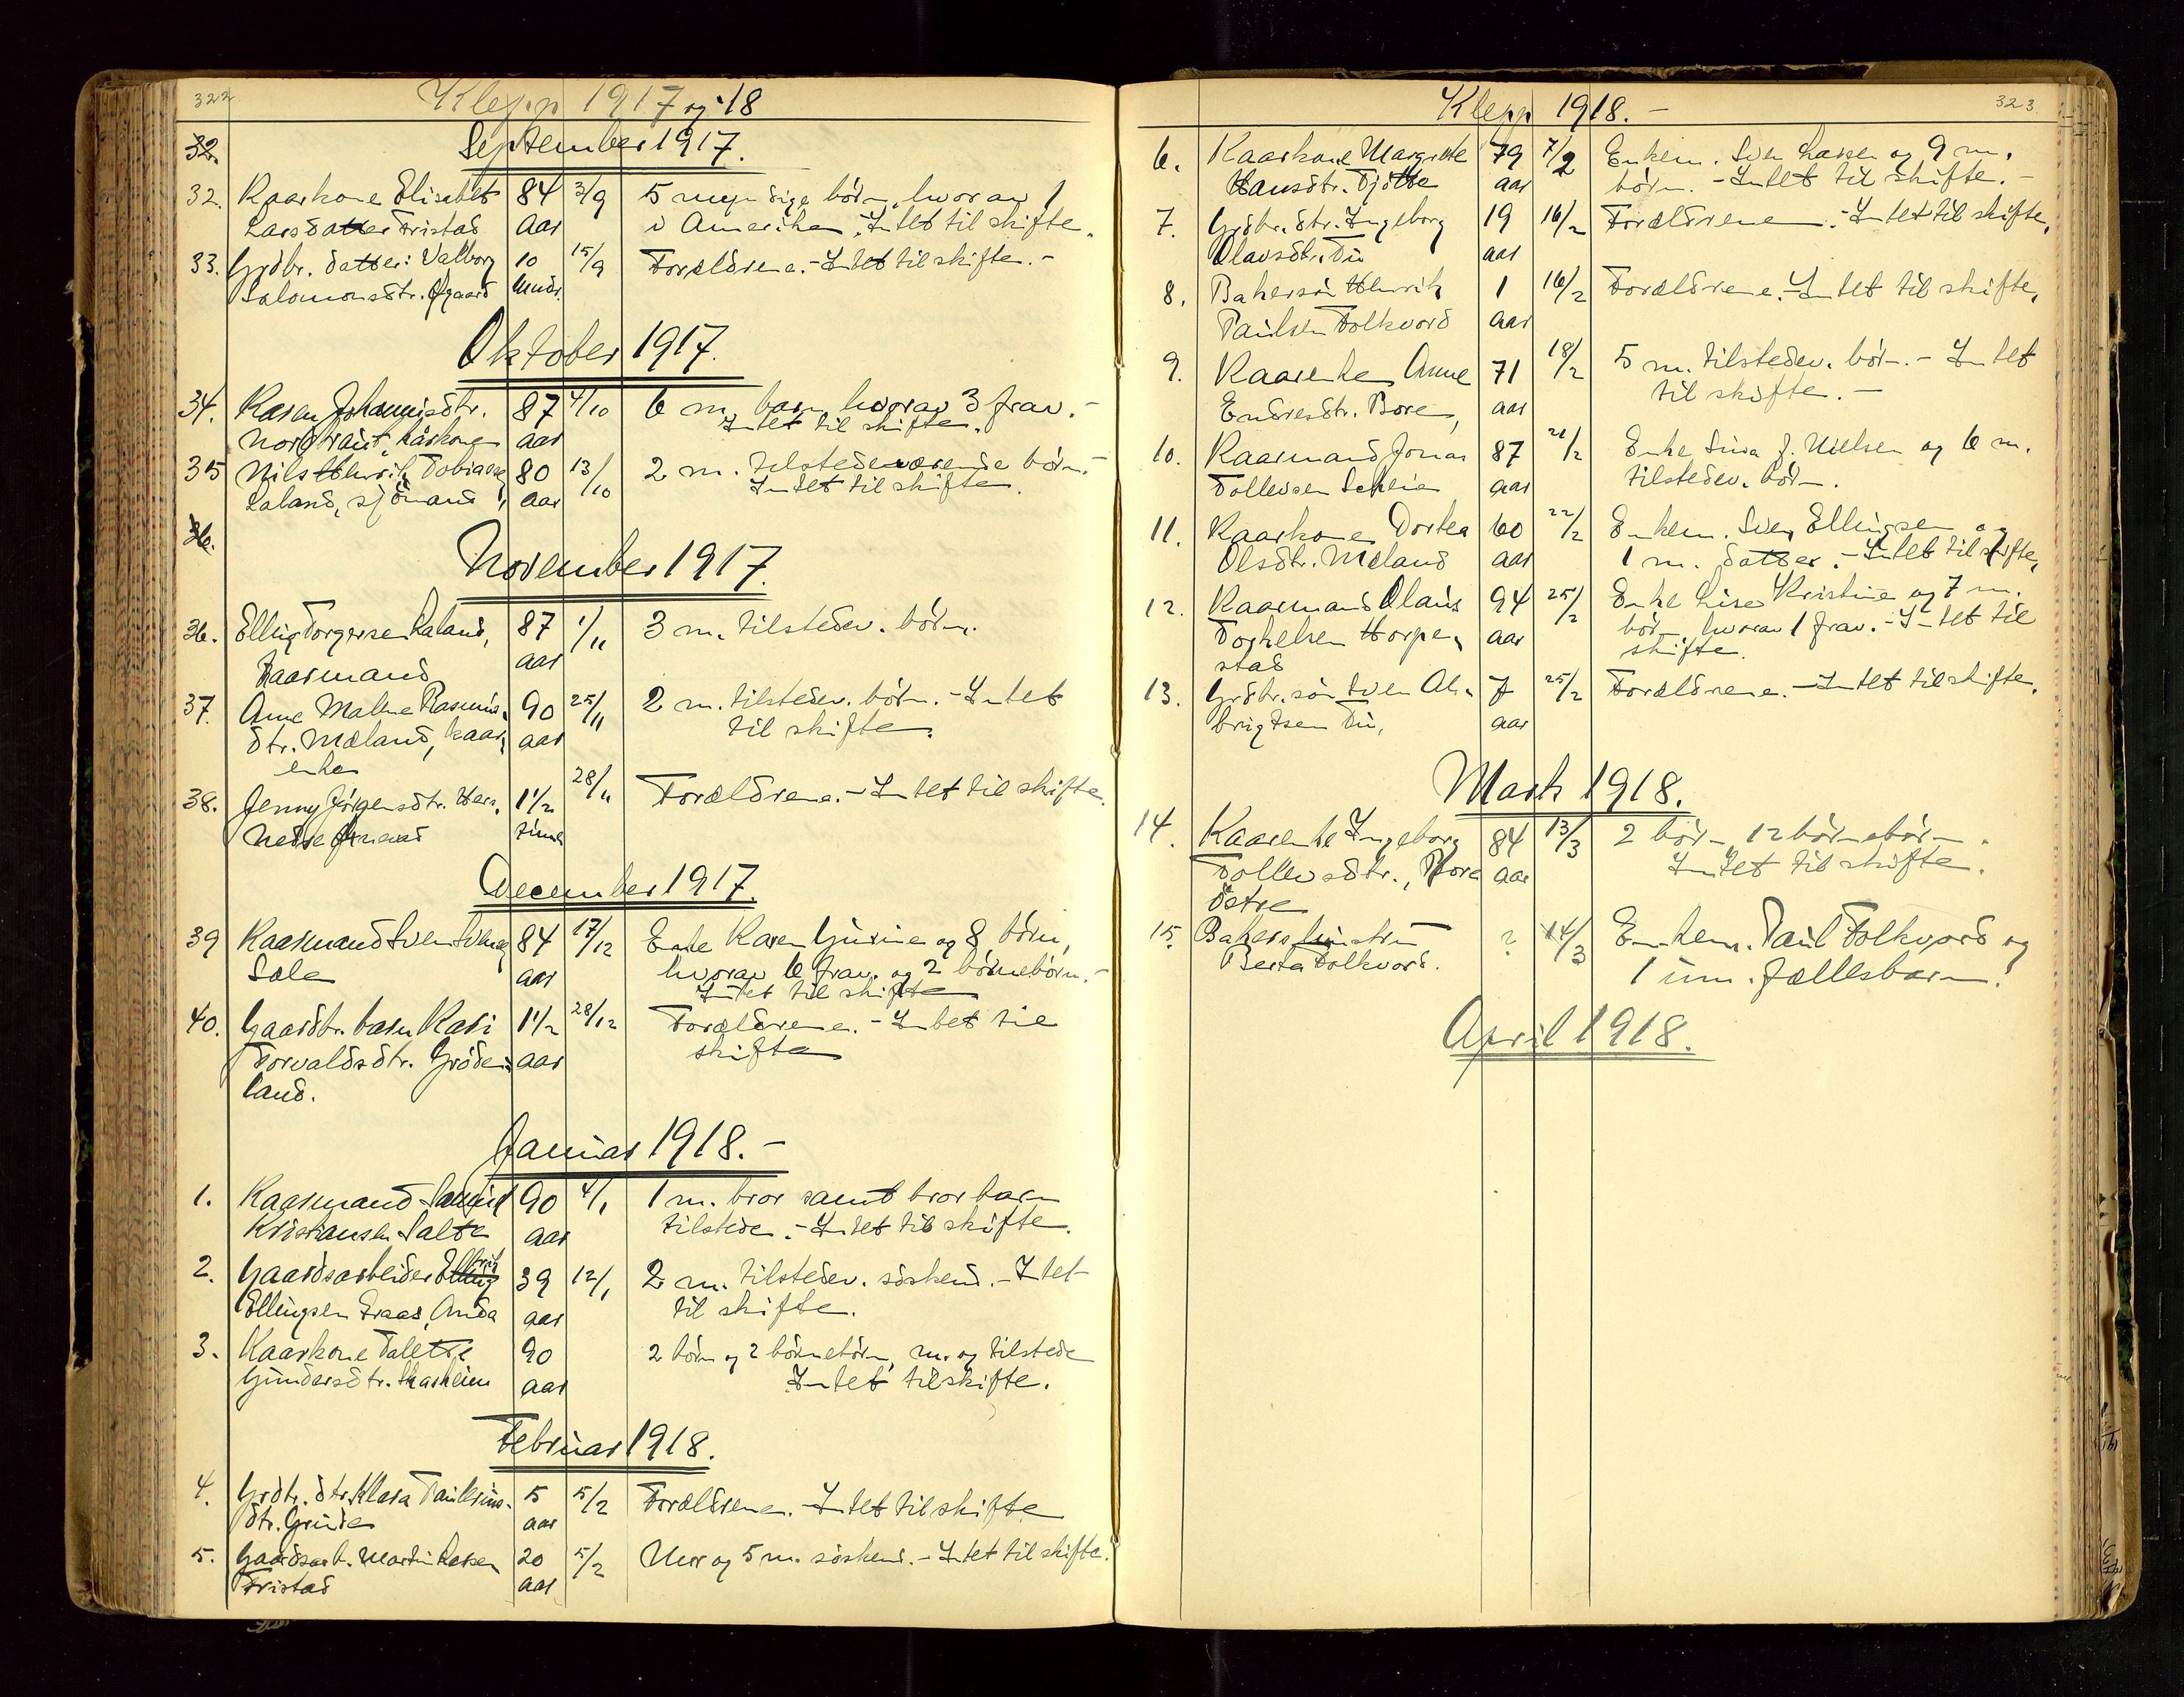 322
Klepp 1917 og '18
32.
September 1917.
32. Kaarkone Elisabet 84 3/9 5 myndige børn, hvorav 1
Larsdatter Tristad aar i Amerika. Intet til skifte.
33. Grdbr. datter: Valborg 10 15/9 Forældrene. - Intet til skifte. -
Salomonsdtr. Øgaard Mndr.
Oktober 1917.
34. Karen Johannisdtr. 87 4/10 6 m. barn hvorav 3 frav. -
aar Intet til skifte.
35 Nils Henrik Tobiasse 80 13/10 2 m. tilstedeværende børn. -
Laland, sjömand aar Intet til skifte.
36.
November 1917.
36. Elling Torgersen Laland, 87 1/11 3 m. tilstedev. børn.
Kaarmand aar
37. Anne Malene Rasmus- 90 25/11 2 m. tilstedev. børn. - Intet
dtr. Mæland, kaar- aar til skifte.
enke
38. Jenny Jörgensdtr. 1 1/2 28/11 Forældrene. - Intet til skifte.
Nedre time
December 1917.
39 Kaarmand Sven 84 17/12 Enke Karen Gurine og 8 børn,
Sele aar hvorav 6 frav. og 2 børnebørn. -
Intet til skifte
40. Gaardbr. barn Kari 1 1/2 28/12 Forældrene. - Intet til
Torvaldsdtr. Gröde- aar skifte
land.
Januar 1918. -
1. Kaarmand 90 4/1 1 m. bror samt brorbarn
Kristiansen Salte aar tilstede. - Intet til skifte.
2. Gaardsarbeider 39 12/1 2 m. tilstedev. söskend. - Intet
Ellingsen Traas, Anda aar til skifte.
3. Kaarkone Talette 90 2 børn og 2 børnebørn, m. og tilstede
Gundersdtr. Skasheim aar Intet til skifte.
Februar 1918.
4. Grdbr. dtr. Klara Paulsine- 5 5/2 Forældrene. - Intet til skifte
dtr. Grude aar
5. Gaardsarb. Martin Larsen 20 5/2 Mor og 5 m. söskend. - Intet til skifte.
Tristad aar
323
Klepp 1918. -
6. Kaarkone Margrete 79 7/2 Enkem. Sven Larsen og 9 m.
Hansdtr. Tjötta aar børn. - Intet til skifte. -
7. Grdbr. dtr. Ingeborg 19 16/2 Forældrene. - Intet til skifte.
Olavsdtr. Tu aar
8. Bakersön Henrik 1 16/2 Forældrene. - Intet til skifte.
Paulsen Folkvord aar
9. Kaarenke Anne 71 18/2 5 m. tilstedev. børn. - Intet
Endresdtr. Bore, aar til skifte. -
10. Kaarmand Jonas 87 21/2 Enke Sina J. Nielsen og 6 m.
Tollevsen Scheie aar tilstedev. børn.
11. Kaarkone Dortea 60 22/2 Enkem. Sven Ellingsen og
Olsdtr. Mæland aar 1 m. datter. - Intet til skifte.
12. Kaarmand Olaus 94 25/2 Enke Lise Kristine og 7 m.
Torkelsen Horpe- aar børn, hvorav 1 frav. - Intet til
stad skifte.
13. Grdbr. sön Sven Al- 7 25/2 Forældrene. - Intet til skifte.
brigtsen Tu, aar
Marts 1918.
14. Kaarenke Ingeborg 84 13/3 2 børn, 12 børnebørn.
Tollevsdtr., Bore aar Intet til skifte.
östre
15. Bakers hustru ? 14/3 Enkem. Paul Folkvord og
Berta Folkvord. 1 um. fællesbarn.
April 1918.